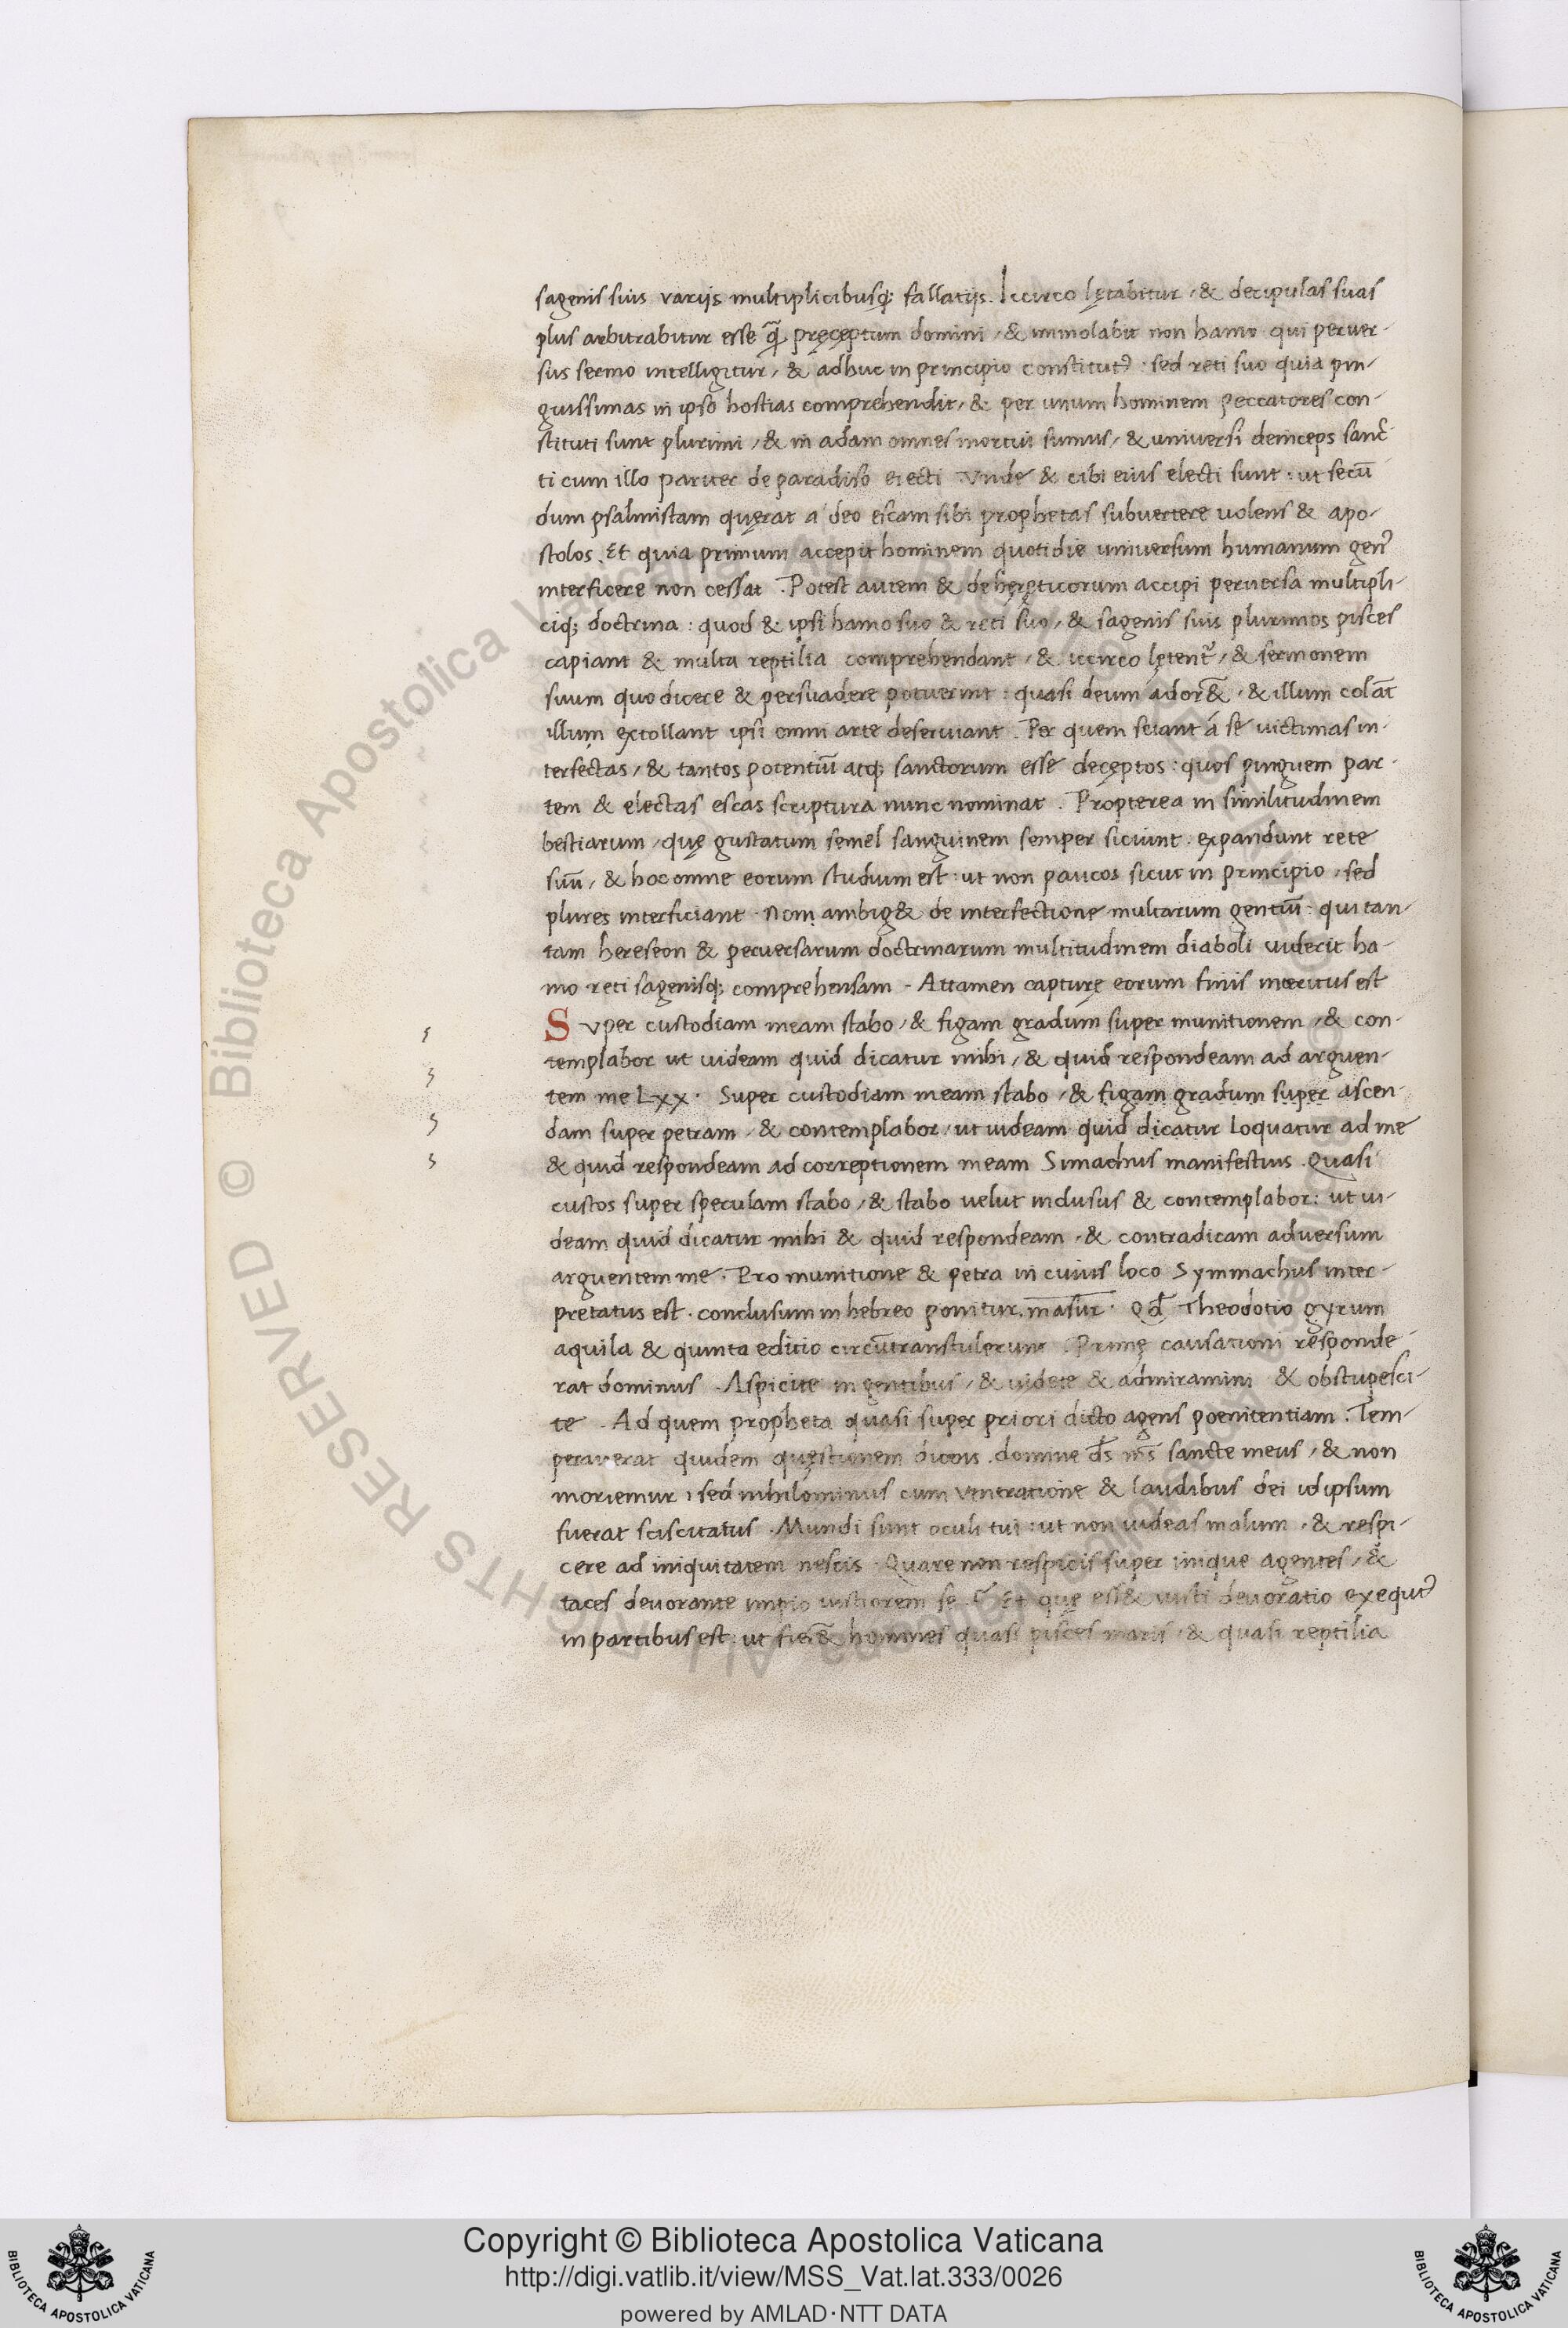 sagenis suis varijs multiplicibusq; fallatijs. Iccirco lętabitur, & decipulas suas
plus arbitrabitur esse q̃ pręceptum domini, & immolabit non hamo qui perver-
sus sermo intelligitur, & adhuc in principio constitut᷒: sed reti suo quia pin-
guissimas in ipso hostias comprehendit, & per unum hominem peccatores con-
stituti sunt plurimi, & in adam omnes mortui sumus, & universi deinceps sanc̃-
ti cum illo pariter de paradiso eiecti. Vnde & cibi eius electi sunt: ut secũ
dum psalmistam quęrat a deo escam sibi prophetas subvertere uolens & apo-
stolos. Et quia primum accepit hominem quotidie universum humanum gen᷒
interficere non cessat. Potest autem & de hęreticorum accipi perversa multipli-
ciq; doctrina: quod & ipsi hamo suo & reti suo, & sagenis suis plurimos pisces
capiant & multa reptilia comprehendant, & iccirco lętent᷑, & sermonem
suum quo dicere & persuadere potuerint: quasi deum ador&̃, & illum colãt
illum extollant ipsi omni arte deserviant. Per quem sciant á se uictimas in-
terfectas, & tantos potentiũ atq; sanctorum esse deceptos: quos pinguem par-
tem & electas escas scriptura nunc nominat. Propterea in similitudinem
bestiarum, quę gustatum semel sanguinem semper siciunt. expandunt rete
suũ, & hoc omne eorum studium est: ut non paucos sicut in principio, sed
plures interficiant. Nom ambig& de interfectione multarum gentiũ: qui tan-
tam hereseon & perversarum doctrinarum multitudinem diaboli uiderit ha-
mo reti sagenisq; comprehensam - Attamen capturę eorum finis interitus est
Super custodiam meam stabo, & figam gradum super munitionem, & con-
templabor ut uideam quid dicatur mihi, & quid respondeam ad arguen-
tem me Lxx. Super custodiam meam stabo, & figam gradum super ascen-
dam super petram, & contemplabor, ut uideam quid dicatur loquatur ad me
& quid respondeam ad correptionem meam Simachus manifestius. Quasi
custos super speculam stabo, & stabo uelut inclusus & contemplabor: ut ui-
deam quid dicatur mihi & quid respondeam, & contradicam adversum
arguentem me. Pro munitione & petra in cuius loco Symmachus inter-
pretatus est. conclusum in hebreo ponitur. masur. Qđ Theodotio gyrum
aquila & quinta editio circũtranstulerunt. Primę causationi responde-
rat dominus. Aspicite in gentibus, & uidete & admiramini & obstupesci-
te. Ad quem propheta quasi super priori dicto agens poenitentiam. Tem-
peraverat quidem quęstionem dicens. domine d̃s m̃s sancte meus, & non
moriemur: sed nihilominus cum veneratione & laudibus dei idipsum
fuerat sciscitatus. Mundi sunt oculi tui: ut non uideas malum, & respi-
cere ad iniquitatem nescis. Quare non respicis super inique agentes, &
taces devorante impio iustiorem se. Et quę ess& iusti devoratio exequit᷑
in partibus est: ut fier&̃ homines quasi pisces maris, & quasi reptilia
Copyright © Biblioteca Apostolica Vaticana
http://digi.vatlib.it/view/MSS_Vat.lat.333/0026
powered by AMLAD·NTT DATA
BIBLIOTECA APOSTOLICA VATICANA
BIBLIOTECA APOSTOLICA VATICANA